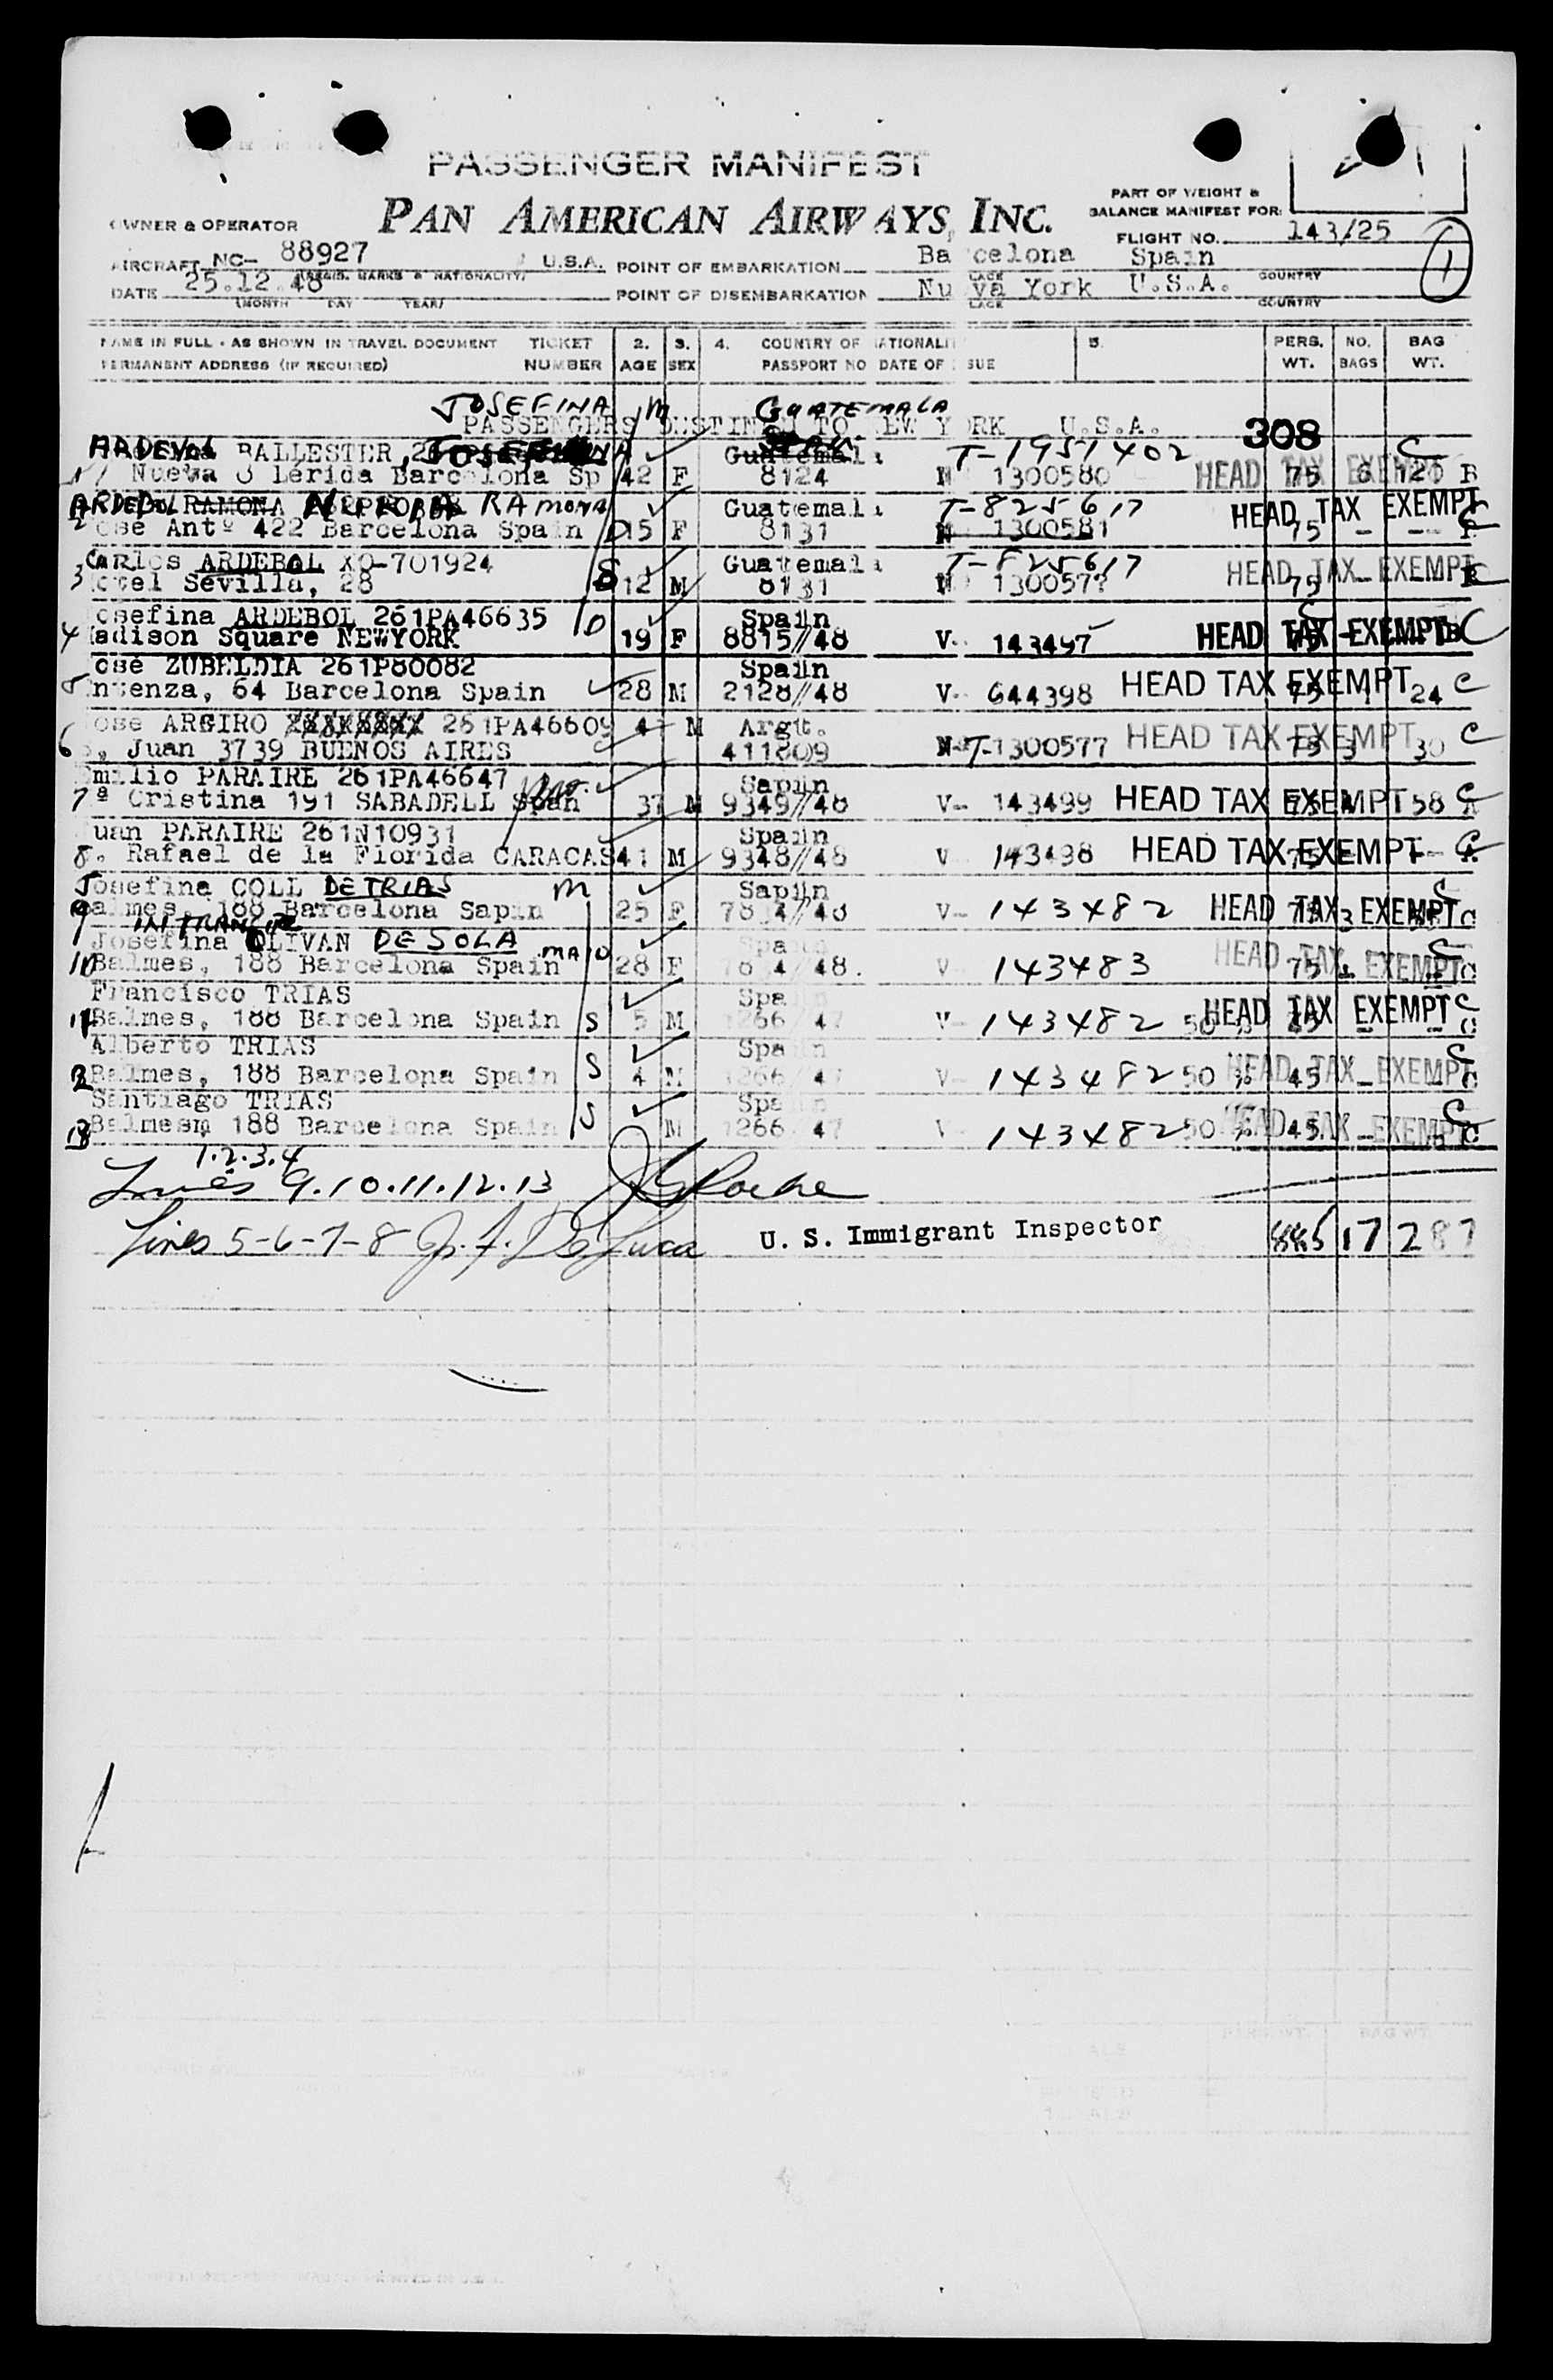 PASSENGER MANIFEST
PAN AMERICAN AIRWAYS, INC.
PART OF WEIGHT &
BALANCE MANIFEST FOR:
OWNER & OPERATOR
FLIGHT NO. 143/25
AIRCRAFT NC- 88927 U.S.A. POINT OF EMBARKATION Ba celona Spain
1
(REGIS. MARKS & NATIONALITY) COUNTRY
DATE 25.12.48 POINT OF DISEMBARKATION Nu va York U.S.A.
(MONTH DAY YEAR) COUNTRY
NAME IN FULL - AS SHOWN IN TRAVEL DOCUMENT TICKET 2. 3. 4. COUNTRY OF NATIONALI 5. PERS. NO. BAG
PERMANENT ADDRESS (IF REQUIRED) NUMBER AGE SEX PASSPORT NO DATE OF SUE WT. BAGS WT.
JOSEFINA M GUATEMALA
PASSENGERS DESTINED TO NEW YORK U.S.A. 308
ARDEVOL BALLESTER Guatemala T-1951402 C
1 Nueva Lérida Barcelona Sp 42 F 8124 1300580 HEAD TAX EXEMPT 75 6 B
ARDEBOL RAMONA RAMONA Guatemala T-825617 HEAD TAX EXEMPT
2 ose Antº 422 Barcelona Spain 15 F 8131 1300581 75 - --
Carlos ARDEBOL XO-701924 S Guatemala T-825617
3 otel Sevilla, 28 12 M 8131 130057 HEAD TAX EXEMPT 75
osefina ARDEBOL 261PA46635 Spain
4 adison Square NEWYORK 19 F 8815//48 V- 143497 HEAD TAX EXEMPT C
ose ZUBELDIA 261P80082 Spain
5 ntenza, 64 Barcelona Spain 28 M 2128//48 V- 644398 HEAD TAX EXEMPT 75 1 24 C
ose ARGIRO 261PA46609 M Argit.
6 , Juan 3739 BUENOS AIRES 411809 T-1300577 HEAD TAX EXEMPT 75 3 30 C
milio PARAIRE 261PA46647 Sapiin
7 ª Cristina 191 SABADELL Span 37 M 9349//48 V- 143499 HEAD TAX EXEMPT 75 58 C
uan PARAIRE 261N10931 Spain
8 . Rafael de la Florida CARACAS 41 M 9348//48 V 143498 HEAD TAX EXEMPT 75 C
Josefina COLL DE TRIAS M Sapiin
9 almes, 188 Barcelona Sapin 25 F 78 4//48 V- 143482 HEAD TAX EXEMPT 75 3 C
IN TRANSIT
Josefina OLIVAN DE SOLA Spa
10 Balmes, 188 Barcelona Spain 28 F 48. V 143483 HEAD TAX EXEMPT 75 C
Francisco TRIAS Spa
11 Balmes, 188 Barcelona Spain S 5 M 1266 47 V- 143482 50 % HEAD TAX EXEMPT C
Alberto TRIAS Spa n
12 Balmes, 188 Barcelona Spain S 4 M 1266 47 V- 143482 50 % HEAD TAX EXEMPT 45 C
Santiago TRIAS Spa
13 Balmesm 188 Barcelona Spain S M 1266 47 V 143482 50 % HEAD TAX EXEMPT 45 C
1.2.3.4
Lines 9.10.11.12.13
Lines 5-6-7-8 J. F. De Luca U. S. Immigrant Inspector 885 17 287